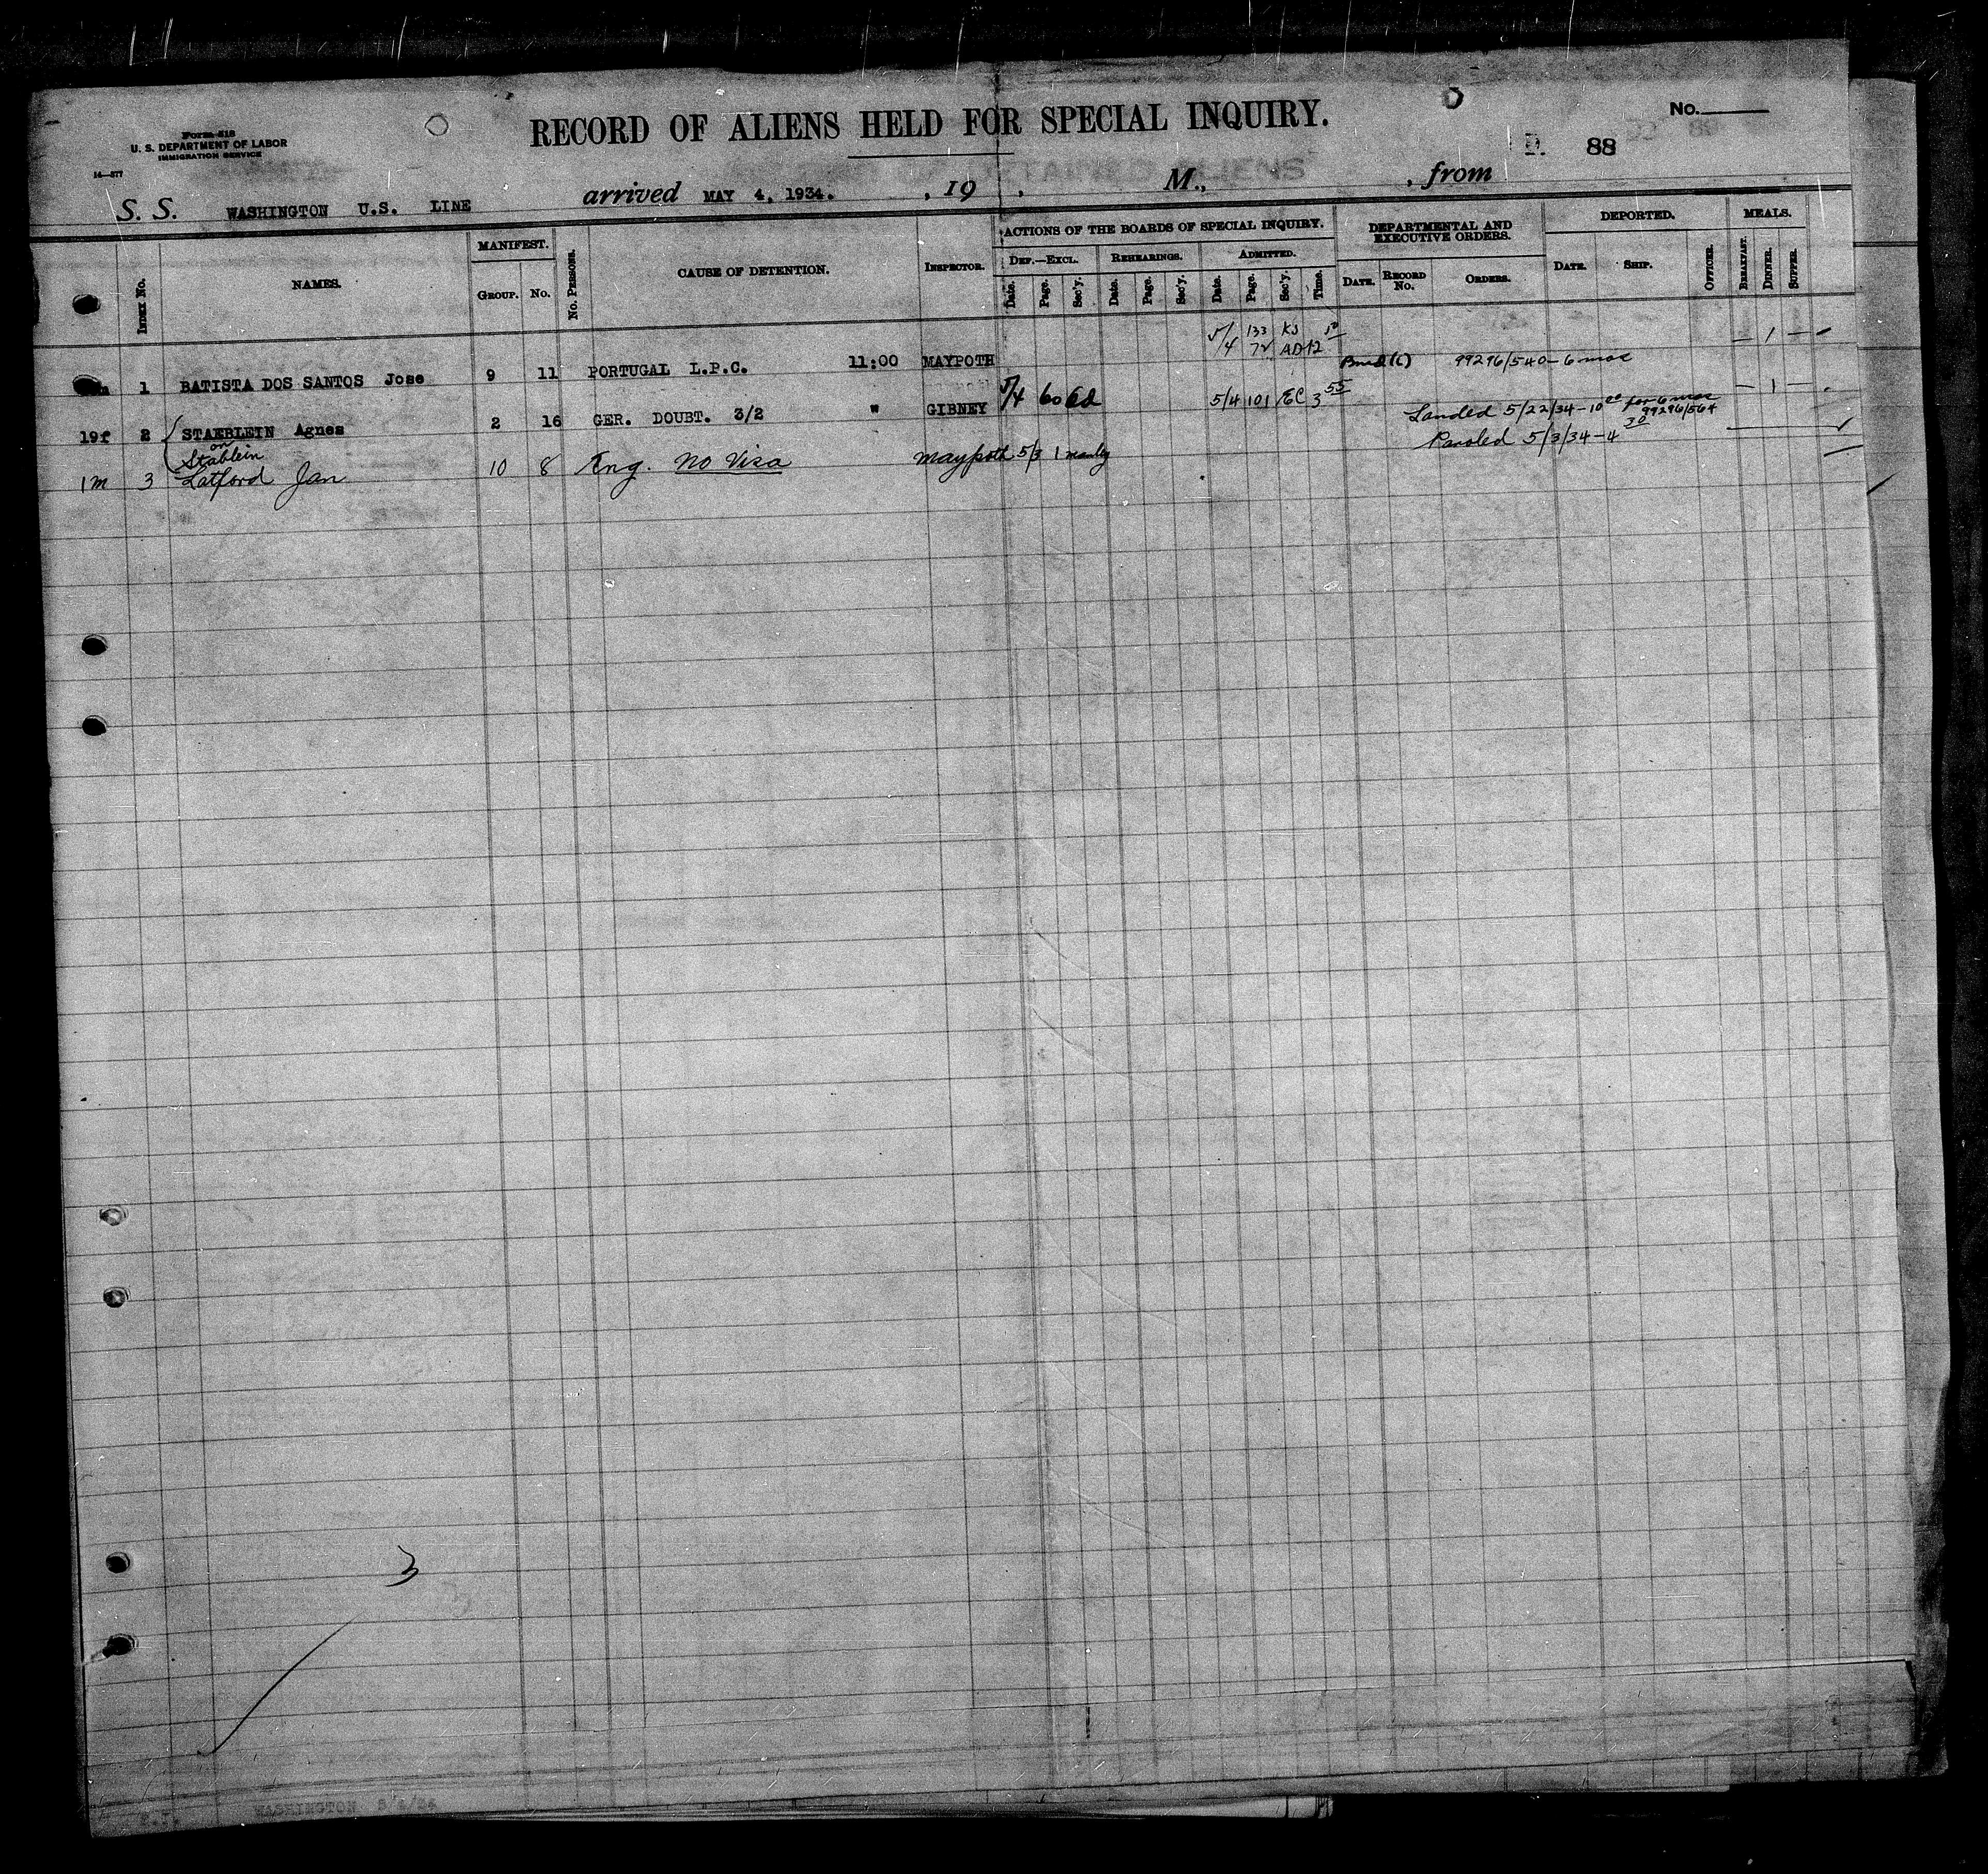 Form 518
U. S. DEPARTMENT OF LABOR
IMMIGRATION SERVICE
14—577
RECORD OF ALIENS HELD FOR SPECIAL INQUIRY.
No.
88
S. S. WASHINGTON U.S. LINE arrived MAY 4, 1934. , 19 , M., , from
INDEX No. NAMES. MANIFEST. GROUP. No. No. PERSONS. CAUSE OF DETENTION. INSPECTOR. ACTIONS OF THE BOARDS OF SPECIAL INQUIRY. DEPARTMENTAL AND EXECUTIVE ORDERS. DEPORTED. MEALS.
DEF.—EXCL. REHEARINGS. ADMITTED.
Date. Page. Sec'y. Date. Page. Sec'y. Date. Page. Sec'y. Time. DATE. RECORD No. ORDERS. DATE. SHIP. OFFICER. BREAKFAST. DINNER. SUPPER.
5/4 133 KS
72 AD 12 — 1 —
1 BATISTA DOS SANTOS Jose 9 11 PORTUGAL L.P.C. 11:00 MAYPOTH 99296/540 - 6 mos
19f 2 STAEBLEIN Agnes 2 16 GER. DOUBT. 3/2 " GIBNEY 5/4 60 Ed 5/4 101 EC 3 55 — 1 —
or Stablein
Landed 5/22/34 - 10 00 for 6 mos
99296/564
1m 3 Latford Jan 10 8 Eng. No Visa Maypoth 5/3 1 Manley Paroled 5/3/34 - 4 30
3
WASHINGTON 5/4/34